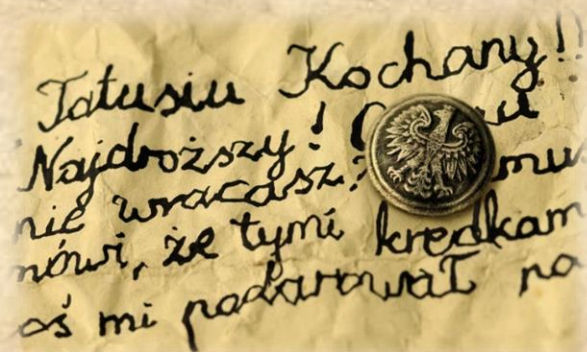 Tatusiu Kochany!!
Najdroższy! C u
nie wracasz? mu
mówi, że tymi kredkam
oś mi podarował na